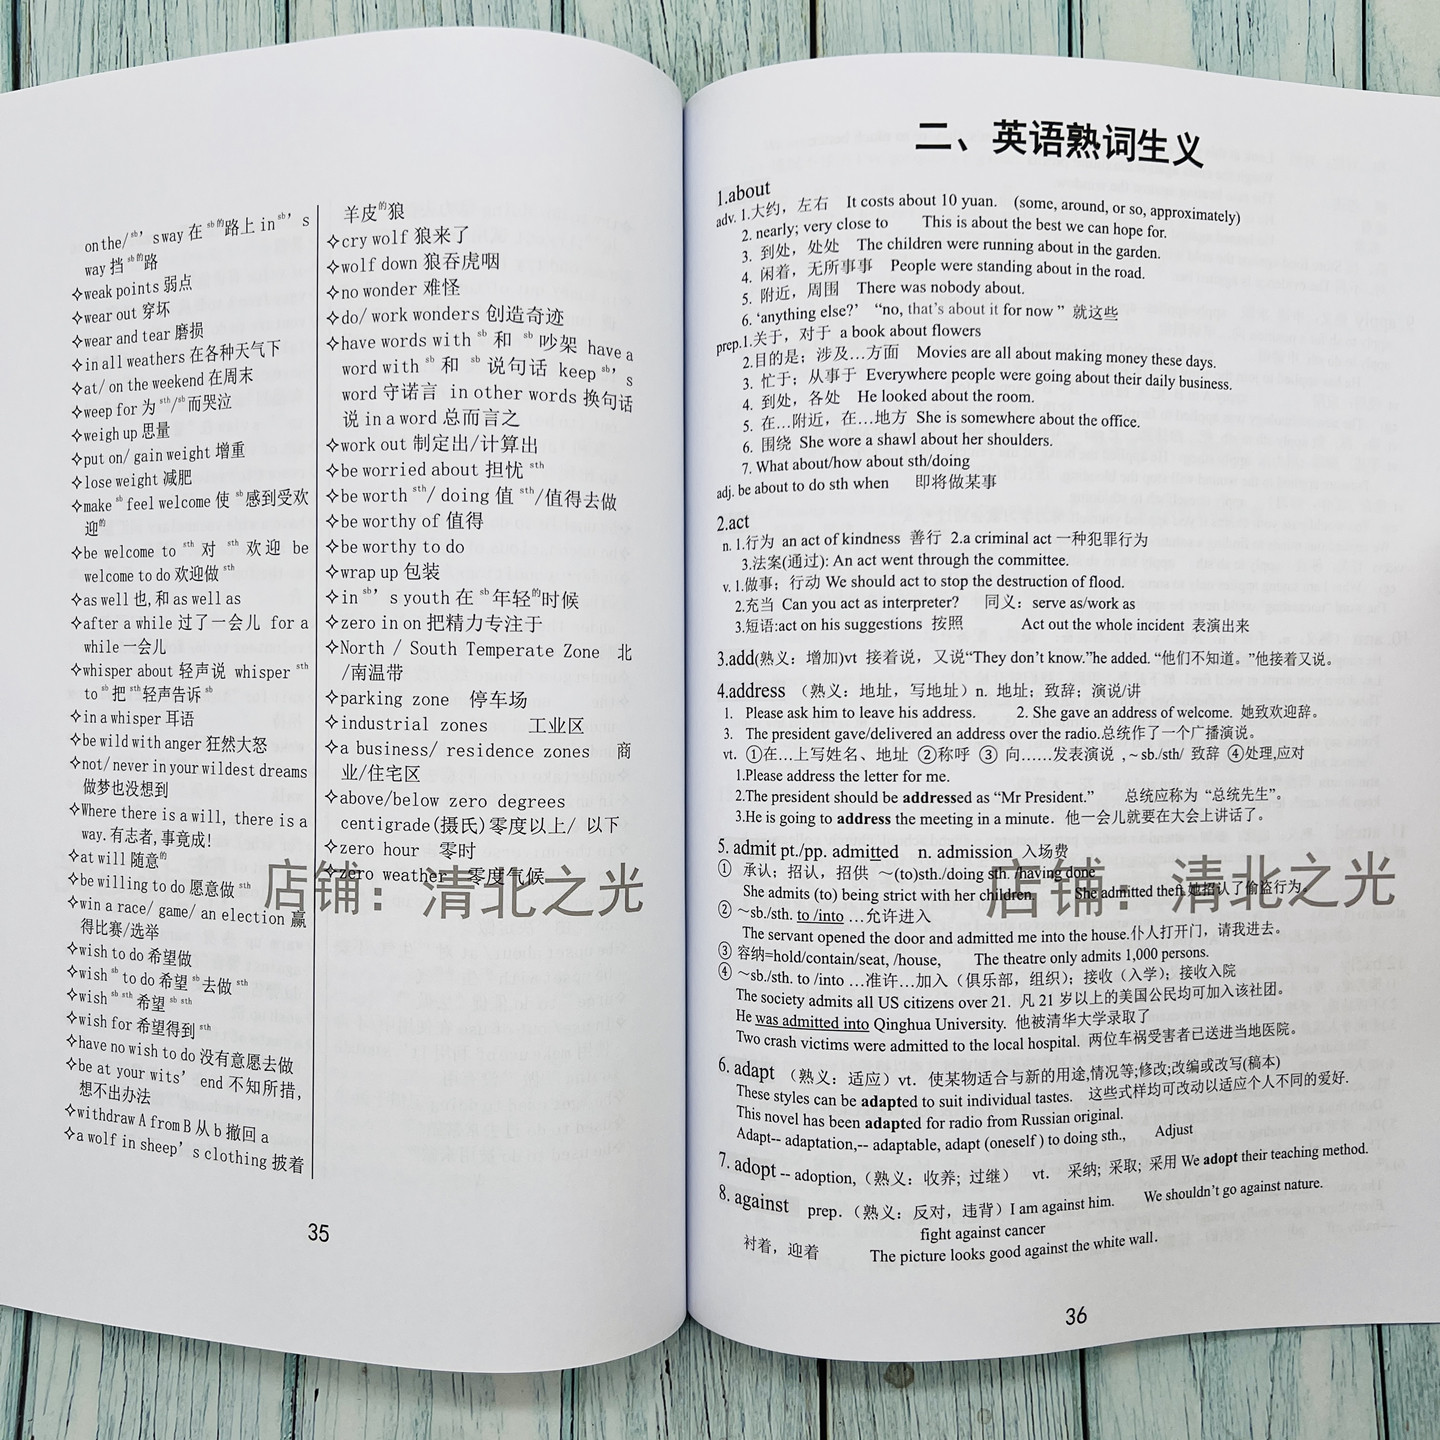 on the/ sb's way 在 sb的路上 in sb's
way 挡 sb的路
✧weak points 弱点
✧wear out 穿坏
✧wear and tear 磨损
✧in all weathers 在各种天气下
✧at/ on the weekend 在周末
✧weep for 为 sth/sb 而哭泣
✧weigh up 思量
✧put on/ gain weight 增重
✧lose weight 减肥
✧make sb feel welcome 使 sb 感到受欢
迎的
✧be welcome to sth 对 sth 欢迎 be
welcome to do 欢迎做 sth
✧as well 也,和 as well as
✧after a while 过了一会儿 for a
while 一会儿
✧whisper about 轻声说 whisper sth
to sb 把 sth 轻声告诉 sb
✧in a whisper 耳语
✧be wild with anger 狂然大怒
✧not/ never in your wildest dreams
做梦也没想到
✧Where there is a will, there is a
way. 有志者,事竟成!
✧at will 随意的
✧be willing to do 愿意做 sth
✧win a race/ game/ an election 赢
得比赛/选举
✧wish to do 希望做
✧wish sb to do 希望 sb 去做 sth
✧wish sb sth 希望 sb sth
✧wish for 希望得到 sth
✧have no wish to do 没有意愿去做
✧be at your wits' end 不知所措,
想不出办法
✧withdraw A from B 从 b 撤回 a
✧a wolf in sheep's clothing 披着
羊皮的狼
✧cry wolf 狼来了
✧wolf down 狼吞虎咽
✧no wonder 难怪
✧do/ work wonders 创造奇迹
✧have words with sb 和 sb 吵架 have a
word with sb 和 sb 说句话 keep sb's
word 守诺言 in other words 换句话
说 in a word 总而言之
✧work out 制定出/计算出
✧be worried about 担忧 sth
✧be worth sth/ doing 值 sth/值得去做
✧be worthy of 值得
✧be worthy to do
✧wrap up 包装
✧in sb's youth 在 sb 年轻的时候
✧zero in on 把精力专注于
✧North / South Temperate Zone 北
/南温带
✧parking zone 停车场
✧industrial zones 工业区
✧a business/ residence zones 商
业/住宅区
✧above/below zero degrees
centigrade(摄氏)零度以上/ 以下
✧zero hour 零时
✧zero weather 零度气候
店铺：清北之光
35
二、英语熟词生义
1.about
adv. 1.大约，左右 It costs about 10 yuan. (some, around, or so, approximately)
2. nearly; very close to This is about the best we can hope for.
3. 到处，处处 The children were running about in the garden.
4. 闲着，无所事事 People were standing about in the road.
5. 附近，周围 There was nobody about.
6. ‘anything else?’ “no, that’s about it for now ” 就这些
prep.1.关于，对于 a book about flowers
2.目的是；涉及…方面 Movies are all about making money these days.
3. 忙于；从事于 Everywhere people were going about their daily business.
4. 到处，各处 He looked about the room.
5. 在…附近，在…地方 She is somewhere about the office.
6. 围绕 She wore a shawl about her shoulders.
7. What about/how about sth/doing
adj. be about to do sth when 即将做某事
2.act
n. 1.行为 an act of kindness 善行 2.a criminal act 一种犯罪行为
3.法案(通过): An act went through the committee.
v. 1.做事；行动 We should act to stop the destruction of flood.
2.充当 Can you act as interpreter? 同义：serve as/work as
3.短语:act on his suggestions 按照 Act out the whole incident 表演出来
3.add(熟义：增加)vt 接着说，又说“They don’t know.”he added. “他们不知道。”他接着又说。
4.address （熟义：地址，写地址）n. 地址；致辞；演说/讲
1. Please ask him to leave his address. 2. She gave an address of welcome. 她致欢迎辞。
3. The president gave/delivered an address over the radio.总统作了一个广播演说。
vt. ①在…上写姓名、地址 ②称呼 ③ 向……发表演说 , ~ sb./sth/ 致辞 ④处理,应对
1.Please address the letter for me.
2.The president should be addressed as “Mr President.” 总统应称为 “总统先生”。
3.He is going to address the meeting in a minute. 他一会儿就要在大会上讲话了。
5. admit pt./pp. admitted n. admission 入场费
① 承认；招认，招供 ～(to)sth./doing sth. /having done
She admits (to) being strict with her children. She admitted theft.她招认了偷盗行为。
② ～sb./sth. to /into …允许进入
The servant opened the door and admitted me into the house.仆人打开门，请我进去。
③ 容纳=hold/contain/seat, /house, The theatre only admits 1,000 persons.
④ ～sb./sth. to /into …准许…加入（俱乐部，组织）；接收（入学）；接收入院
The society admits all US citizens over 21. 凡 21 岁以上的美国公民均可加入该社团。
He was admitted into Qinghua University. 他被清华大学录取了
Two crash victims were admitted to the local hospital. 两位车祸受害者已送进当地医院。
6. adapt （熟义：适应）vt. 使某物适合与新的用途,情况等;修改;改编或改写(稿本)
These styles can be adapted to suit individual tastes. 这些式样均可改动以适应个人不同的爱好.
This novel has been adapted for radio from Russian original.
Adapt-- adaptation,-- adaptable, adapt (oneself ) to doing sth., Adjust
7. adopt -- adoption,（熟义：收养; 过继） vt. 采纳; 采取; 采用 We adopt their teaching method.
8. against prep.（熟义：反对，违背）I am against him. We shouldn’t go against nature.
fight against cancer
衬着，迎着 The picture looks good against the white wall.
店铺：清北之光
36